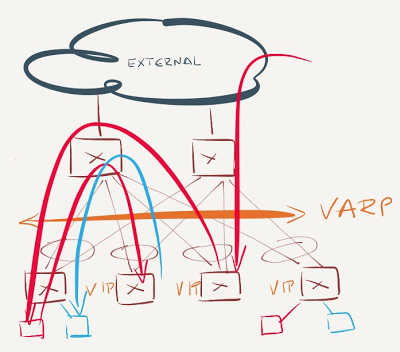 EXTERNAL
VARP
VIP
VIP
VIP